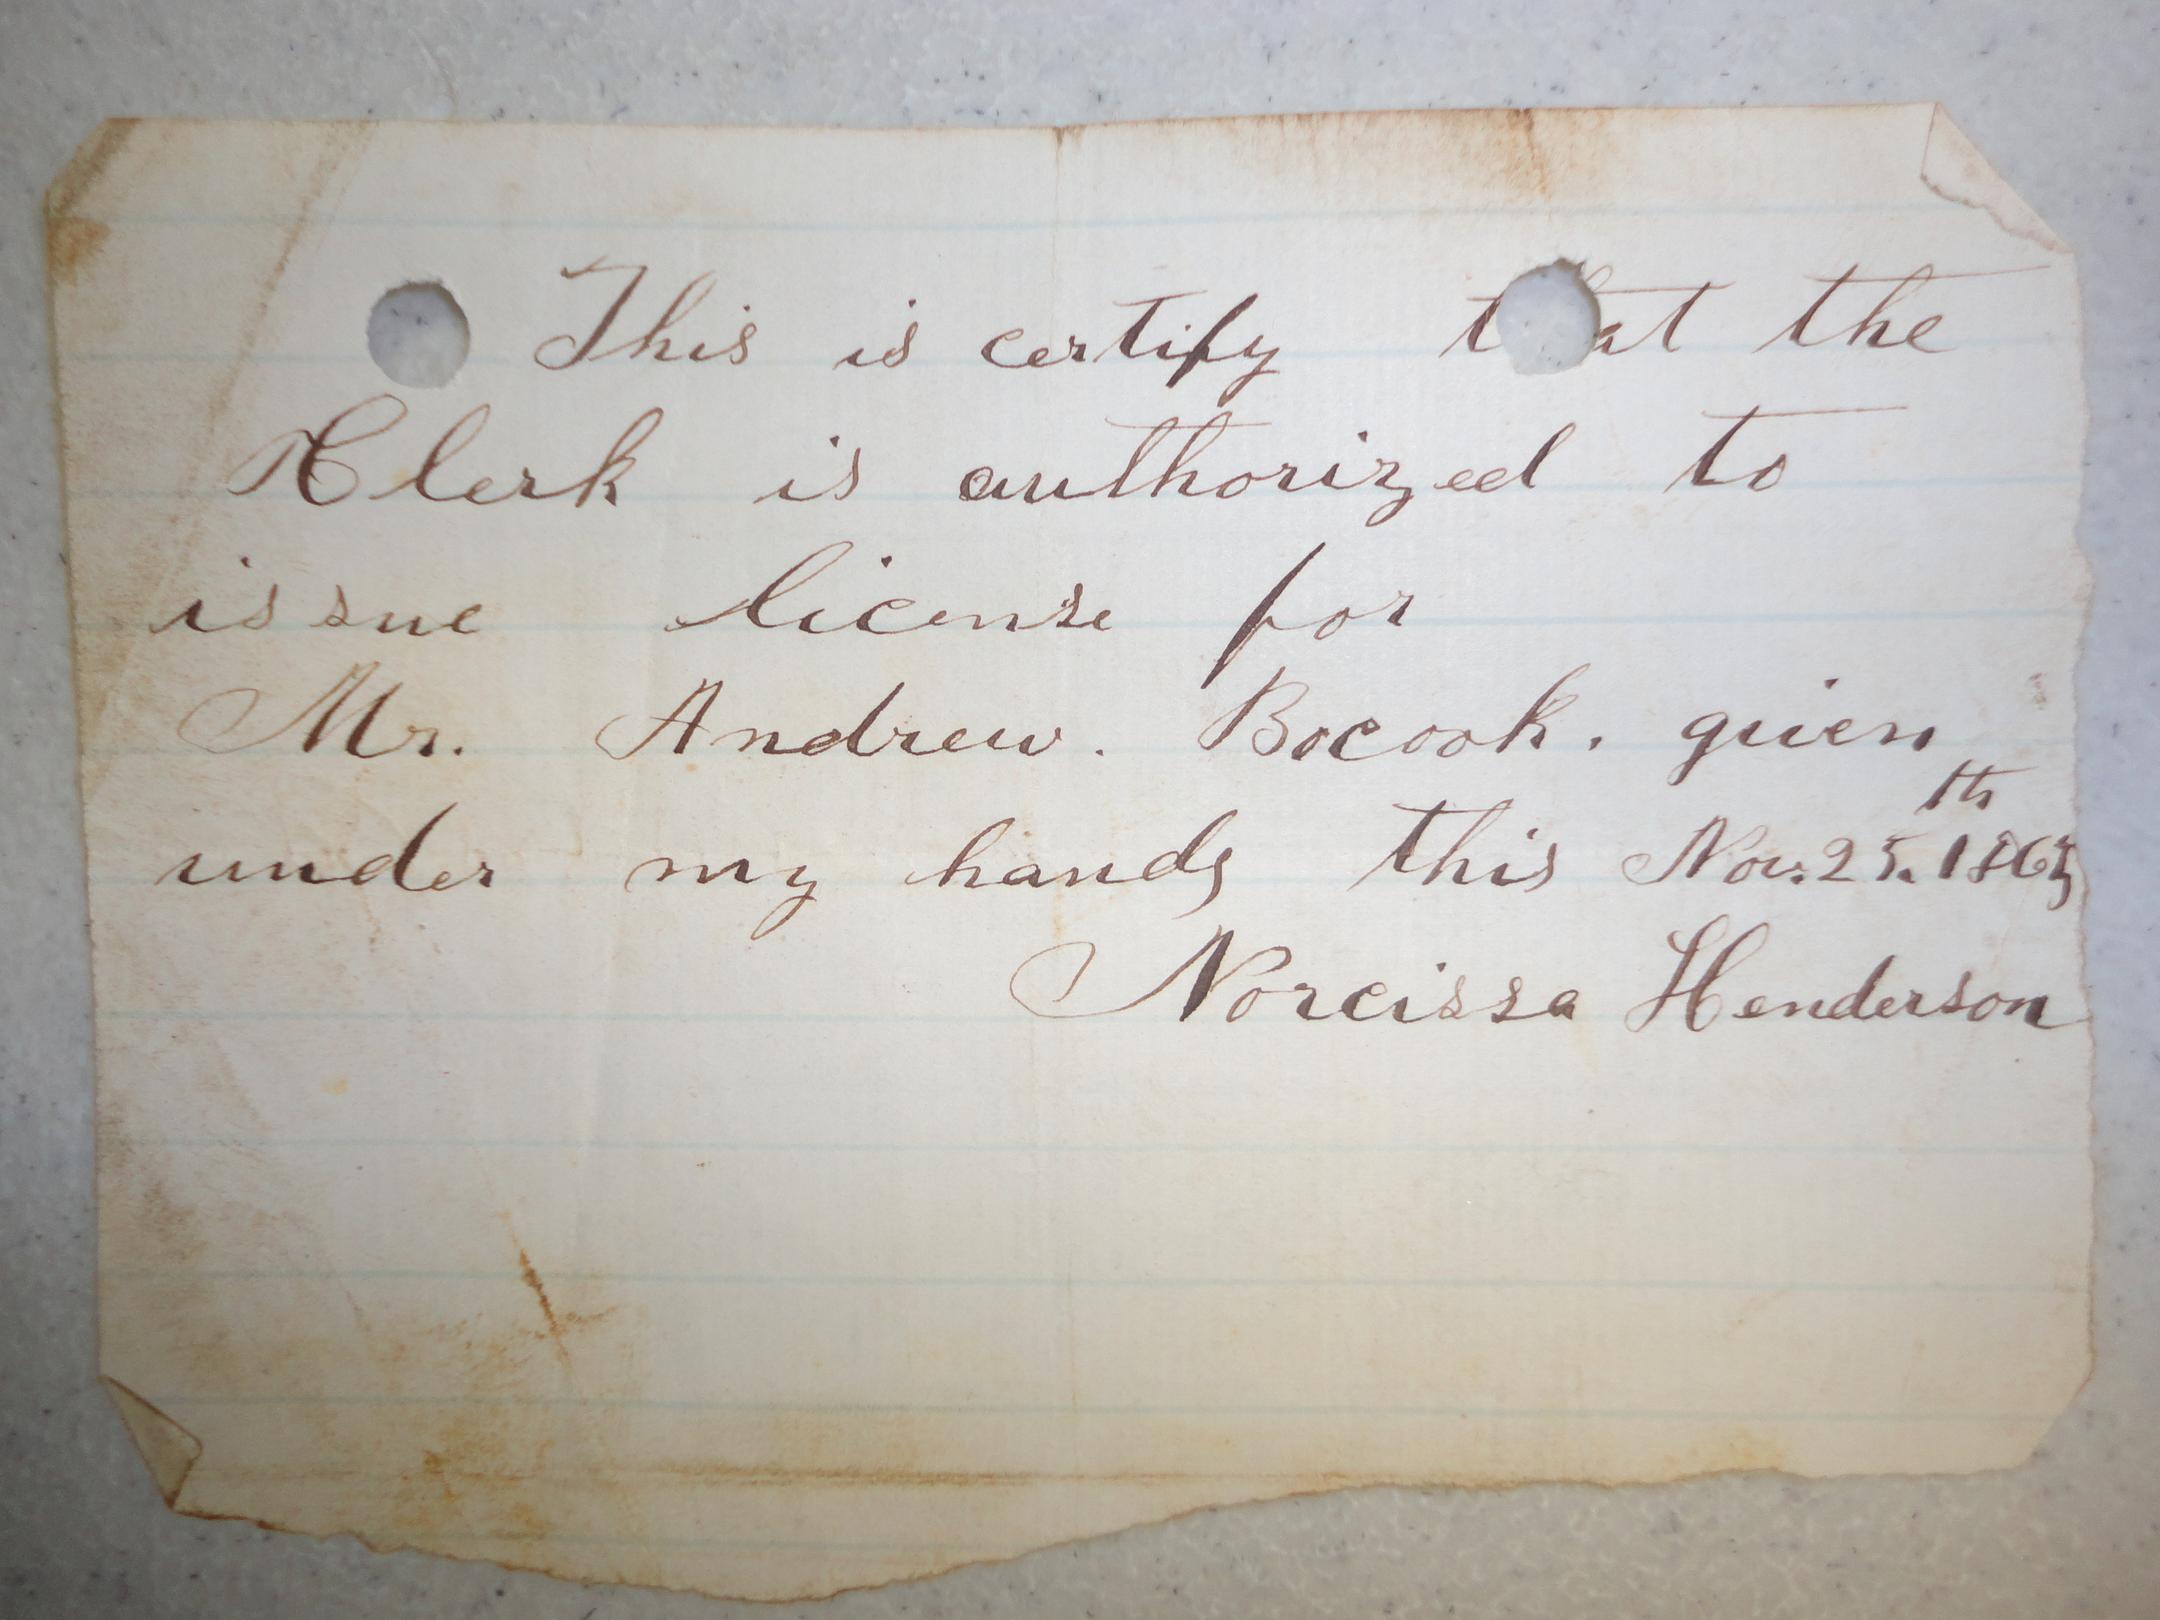 This is certify that the
Clerk is authorized to
issue license for
Mr. Andrew. Bocook. given
under my hands this Nov. 25.th 1865
Norcissa Henderson